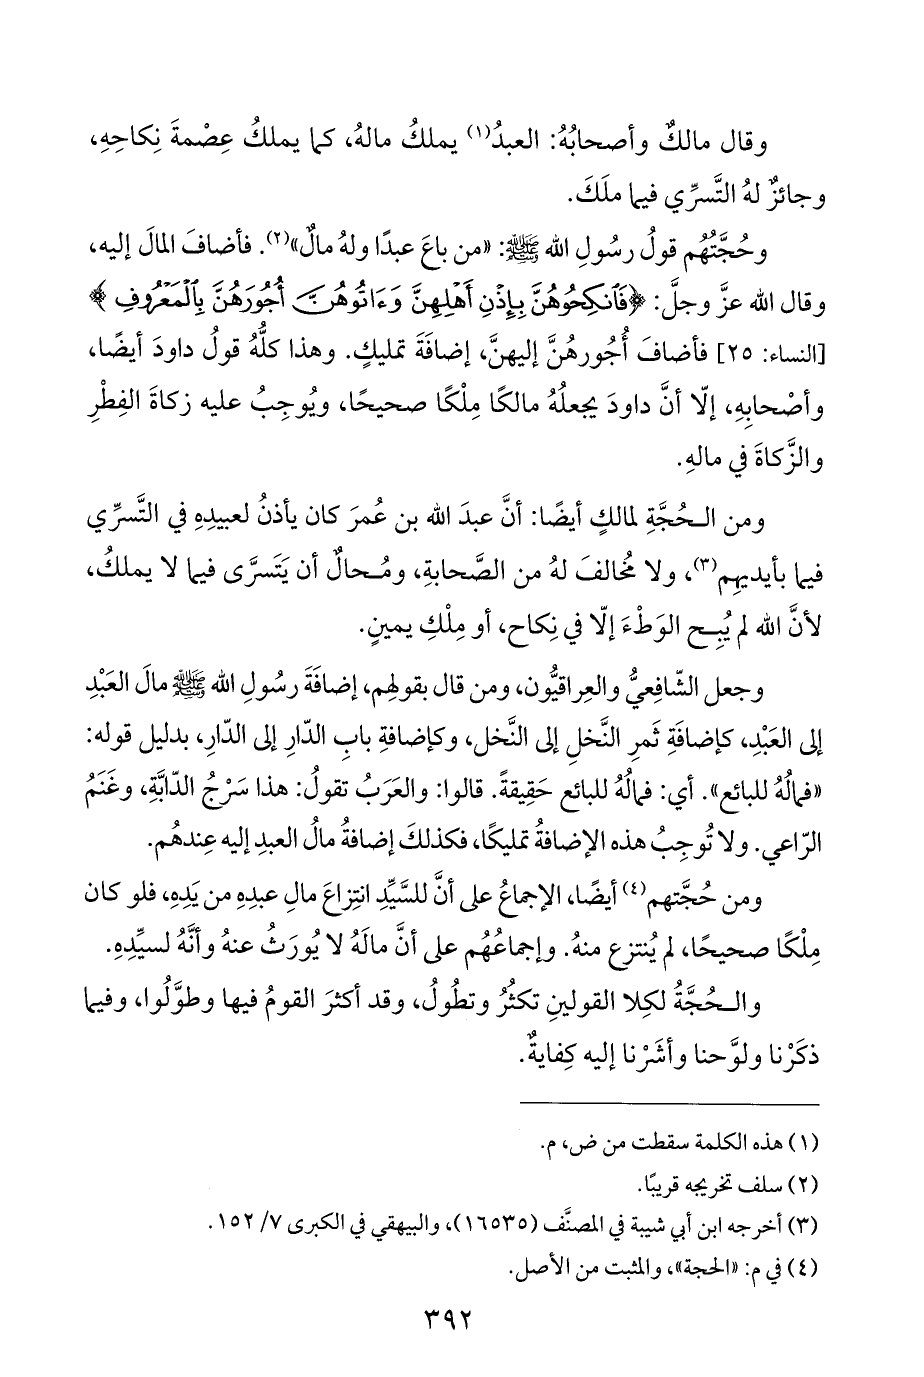 وقال مالكٌ وأصحابُهُ: العبدُ(١) يملكُ مالهُ، كما يملكُ عِصْمةَ نِكاحِهِ،
وجائزٌ لهُ التَّسرِّي فيما ملَكَ.
وحُجَّتُهُم قولُ رسُولِ الله ﷺ: «من باعَ عبدًا ولهُ مالٌ»(٢). فأضافَ المالَ إليه،
وقال الله عزَّ وجلَّ: ﴿فَٱنكِحُوهُنَّ بِإِذْنِ أَهْلِهِنَّ وَءَاتُوهُنَّ أُجُورَهُنَّ بِٱلْمَعْرُوفِ﴾
[النساء: ٢٥] فأضافَ أُجُورهُنَّ إليهنَّ، إضافَةَ تمليكٍ. وهذا كلُّهُ قولُ داودَ أيضًا،
وأصْحابِهِ، إلّا أنَّ داودَ يجعلُهُ مالكًا مِلْكًا صحيحًا، ويُوجِبُ عليه زكاةَ الفِطْرِ
والزَّكاةَ في مالهِ.
ومن الـحُجَّةِ لمالكٍ أيضًا: أنَّ عبدَ الله بن عُمرَ كان يأذنُ لعبيدِهِ في التَّسرِّي
فيما بأيديهِم(٣)، ولا مُخالفَ لهُ من الصَّحابةِ، ومُـحالٌ أن يَتَسرَّى فيما لا يملكُ،
لأنَّ الله لم يُبِـح الوَطْءَ إلّا في نِكاح، أو مِلْكِ يمينٍ.
وجعل الشّافِعيُّ والعِراقيُّون، ومن قال بقولِهم، إضافَةَ رسُولِ الله ﷺ مالَ العَبْدِ
إلى العَبْدِ، كإضافَةِ ثَمرِ النَّخلِ إلى النَّخل، وكإضافةِ بابِ الدّارِ إلى الدّارِ، بدليل قوله:
«فمالُهُ للبائع». أي: فمالُهُ للبائع حَقِيقةً. قالوا: والعَرَبُ تقولُ: هذا سَرْجُ الدّابَّةِ، وغَنَمُ
الرّاعي. ولا تُوجِبُ هذه الإضافةُ تمليكًا، فكذلكَ إضافةُ مالُ العبدِ إليه عِندهُم.
ومن حُجَّتهم(٤) أيضًا، الإجماعُ على أنَّ للسَّيِّدِ انتِزاعَ مالِ عبدِهِ من يَدِهِ، فلو كان
مِلْكًا صحيحًا، لم يُنتزع منهُ. وإجماعُهُم على أنَّ مالَهُ لا يُورَثُ عنهُ وأنَّهُ لسيِّدِهِ.
والـحُجَّةُ لكِلا القولينِ تكثُرُ وتطُولُ، وقد أكثرَ القومُ فيها وطوَّلُوا، وفيما
ذكَرْنا ولوَّحنا وأشَرْنا إليه كِفايةٌ.
(١) هذه الكلمة سقطت من ض، م.
(٢) سلف تخريجه قريبًا.
(٣) أخرجه ابن أبي شيبة في المصنَّف (١٦٥٣٥)، والبيهقي في الكبرى ٧/ ١٥٢.
(٤) في م: «الحجة»، والمثبت من الأصل.
٣٩٢